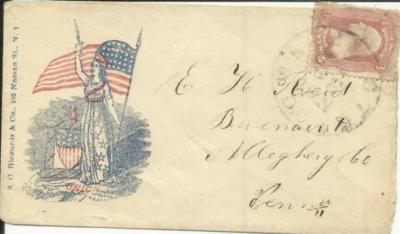 S. C. Rickards & Co., 102 Nassau St., N. Y
E. H. Reid
Buenavista
Alleghery Co
Penn